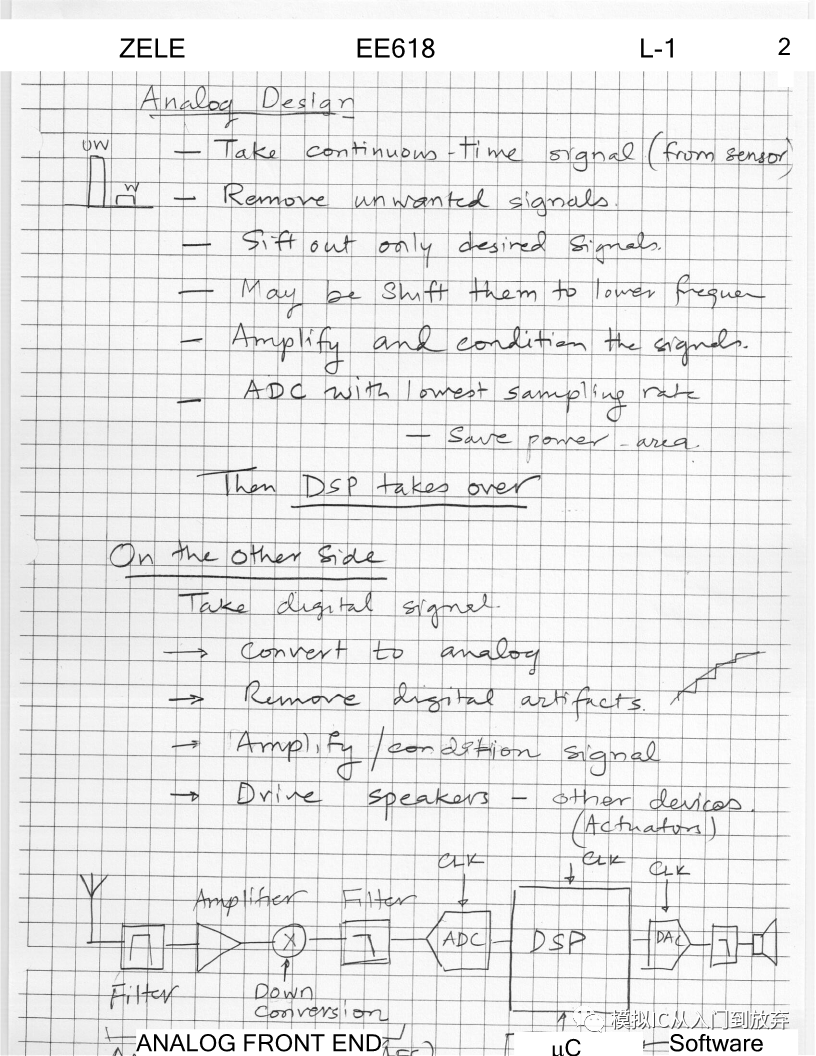 ZELE EE618 L-1 2
Analog Design
UW
W
— Take continuous-time signal (from sensor)
— Remove unwanted signals.
— Sift out only desired signals.
— May be shift them to lower frequen
— Amplify and condition the signals.
— ADC with lowest sampling rate
— Save power - area.
Then DSP takes over
On the other side
Take digital signal.
→ Convert to analog
→ Remove digital artifacts.
→ Amplify/condition signal
→ Drive speakers - other devices.
(Actuators)
CLK CLK CLK
Amplifier Filter
X ADC DSP DAC
Filter Down
Conversion
模拟IC从入门到放弃
ANALOG FRONT END μC Software